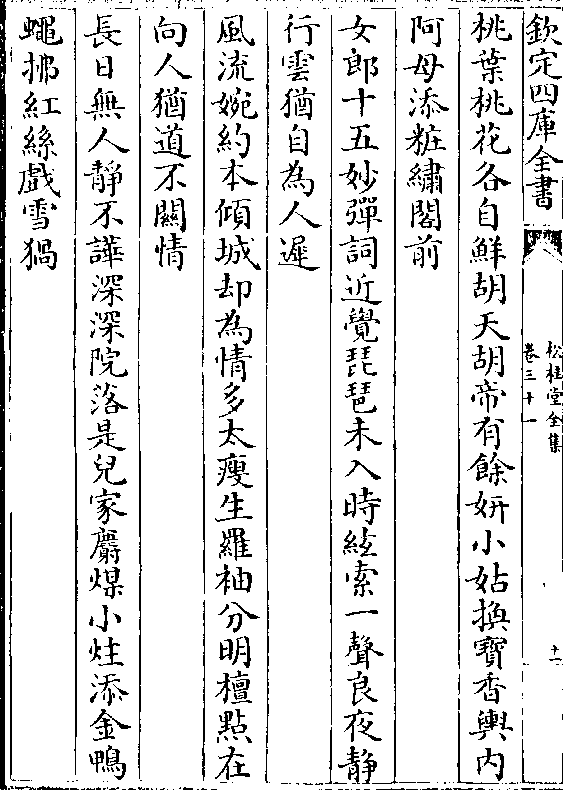 欽定四庫全書
松桂堂全集
卷三十一
十一
桃葉桃花各自鮮胡天胡帝有餘妍小姑換寶香輿内
阿母添粧繡閣前
女郎十五妙彈詞近覺琵琶未入時絃索一聲良夜静
行雲猶自為人遲
風流婉約本傾城却為情多太瘦生羅袖分明檀點在
向人猶道不關情
長日無人靜不譁深深院落是兒家麝煤小炷添金鴨
蠅拂紅絲戲雪猧